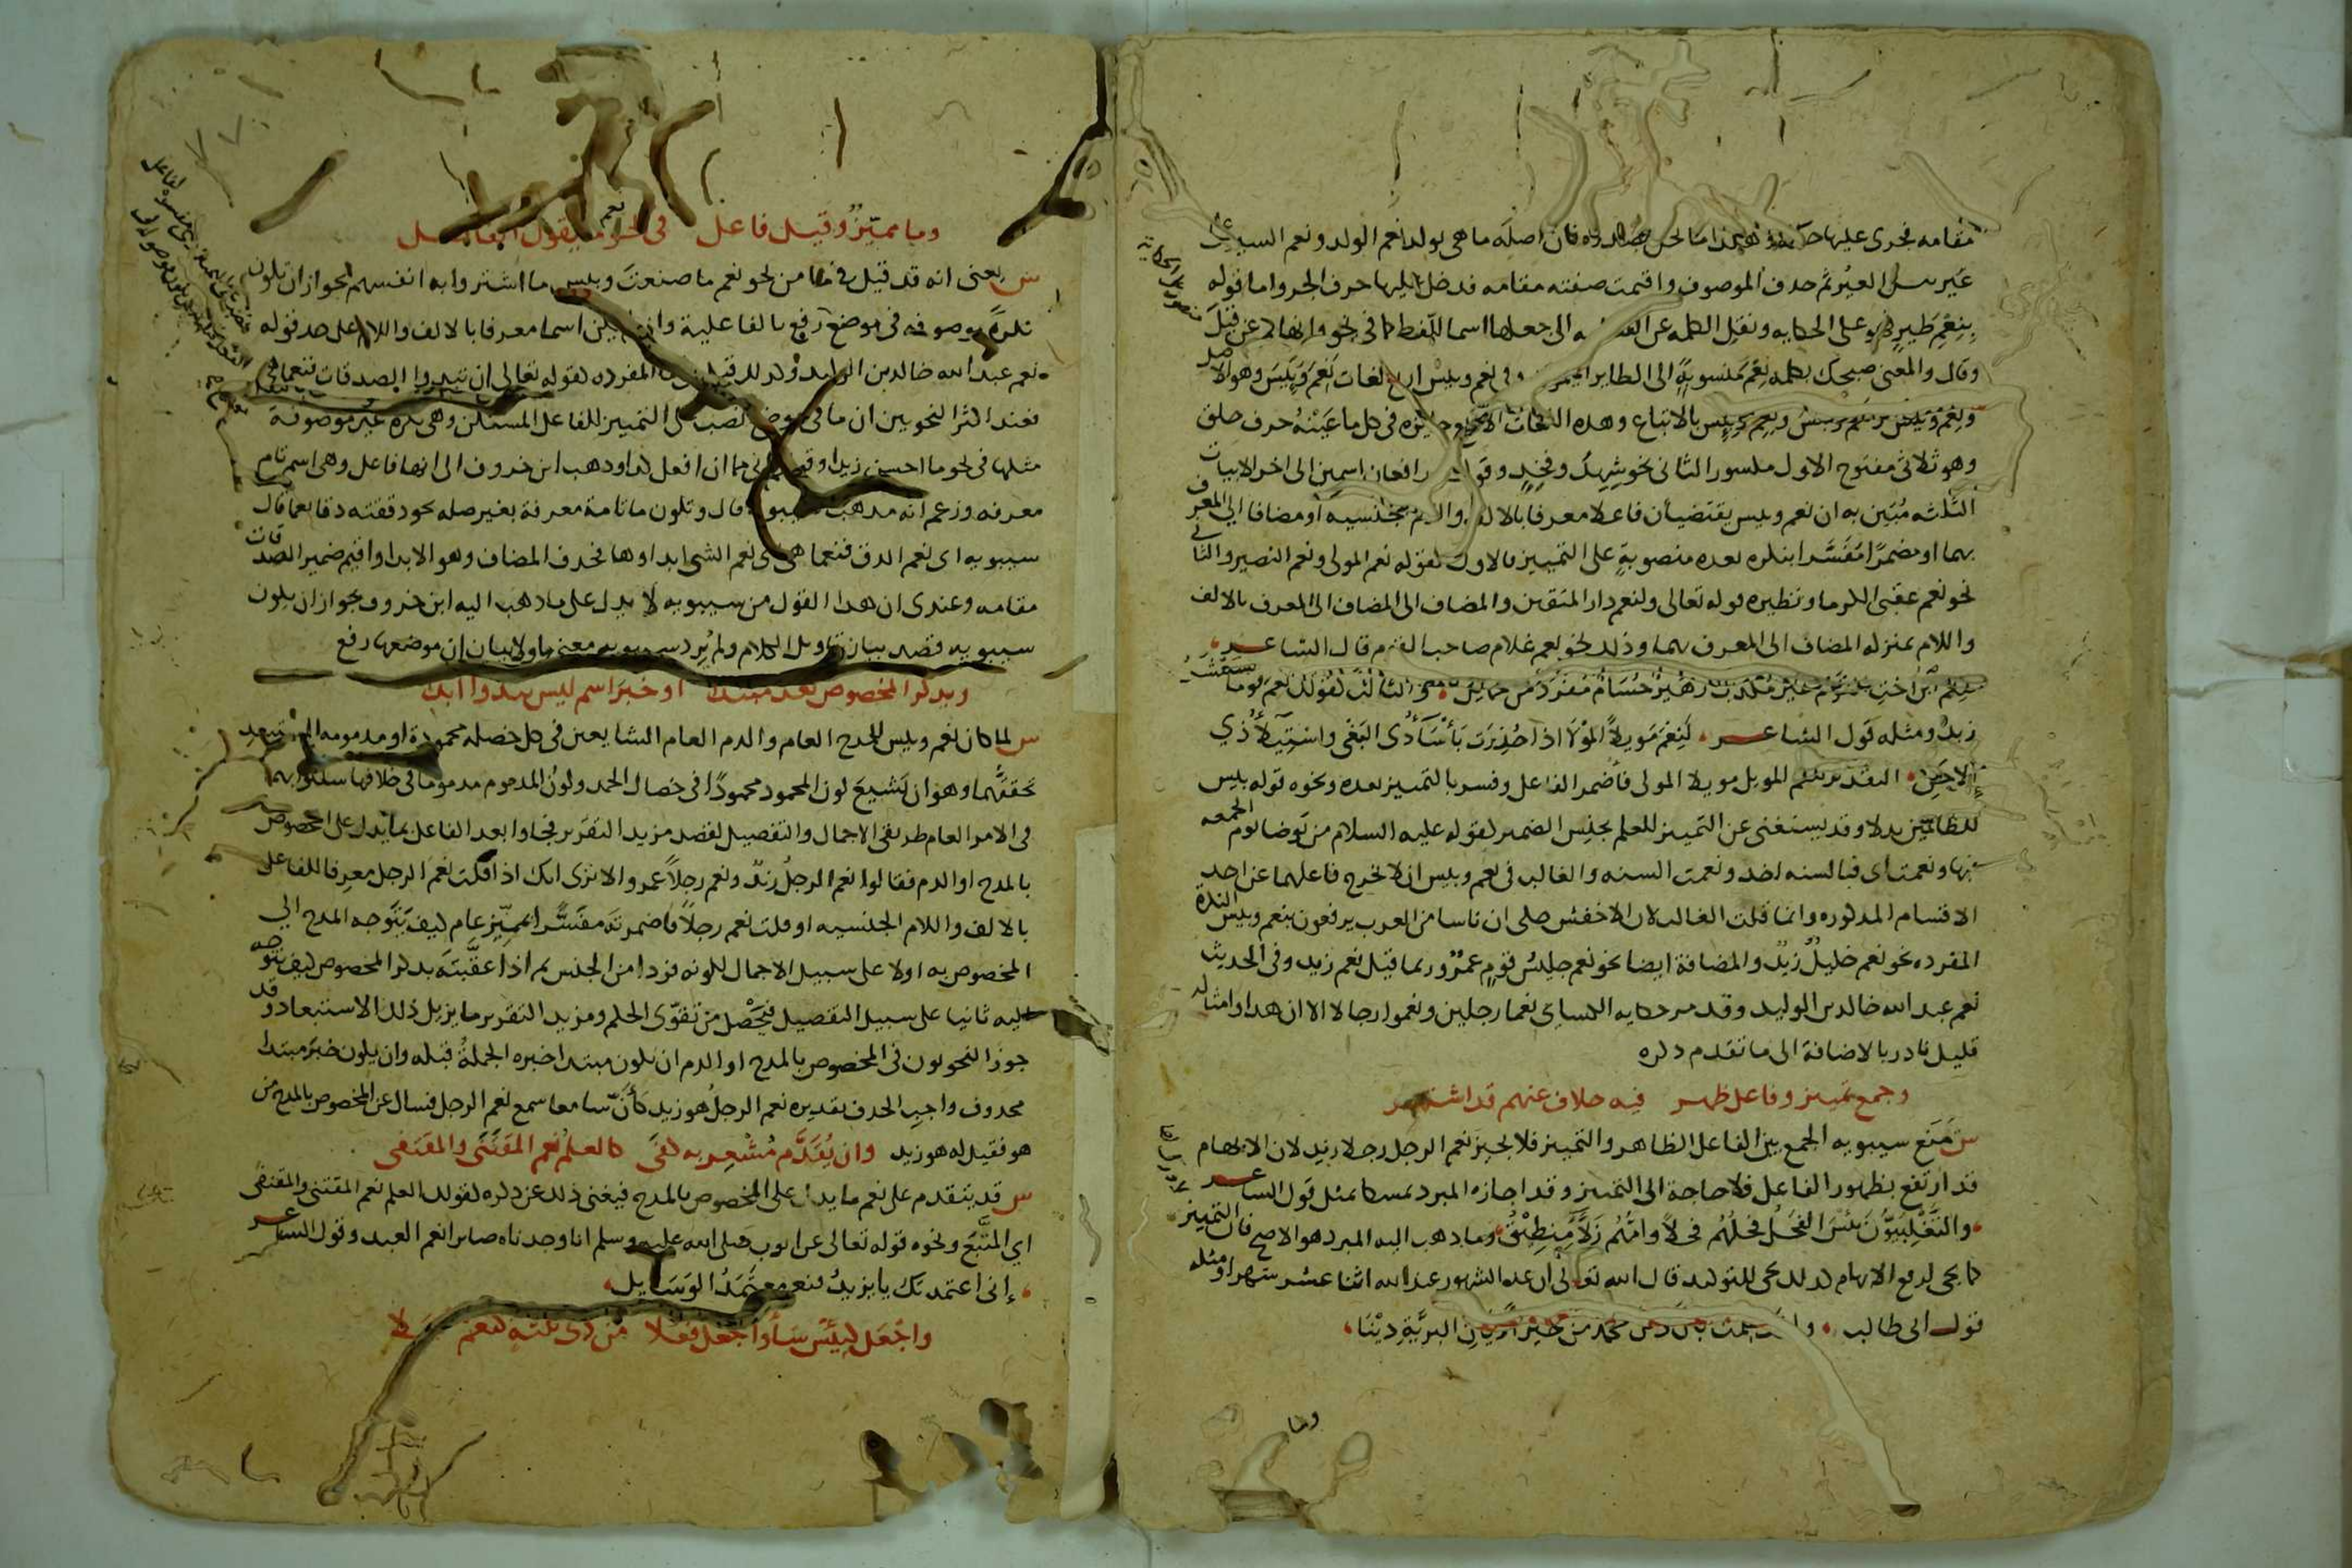 مقامه فجرى عليها حكمه
غير بئس العير ثم حذف الموصوف واقيمت صفته مقامه فدخل عليها حرف الجر واما قوله
بنعم طير فهو على الحكايه ونقل الكلمه عن الى جعلها اسما للفظ كما في نحو وانهاكم عن قيل
وقال والمعنى صبحك بكلمه نعم منسوبة الى الطاير وفي نعم وبيس اربع لغات نعم وبيس وهو الاصل
ونعم وبيس ونعم وبيس بالاتباع وهذه اللغات الاربع جايزه في كل ما عينه حرف حلق
وهو ثلاثي مفتوح الاول مكسور الثاني نحو شهد وفخذ وقوله رافعان اسمين الى اخر الابيات
الثلثه مبين به ان نعم وبيس يقتضيان فاعلا معرفا بالالف واللام الجنسيه او مضافا الى المعرف
بهما او مضمرا مفسرا بنكره بعده منصوبة على التمييز فالاول كقوله نعم المولى ونعم النصير والثاني
نحو نعم عقبى الكرما ونظيره قوله تعالى ولنعم دار المتقين والمضاف الى المضاف الى المعرف بالالف
واللام بمنزله المضاف الى المعرف بهما وذلك نحو نعم غلام صاحب القوم قال الشاعر
فنعم ابن اخت القوم غير مكذب زهير حسام مفرد من حمايل والثالث كقولك نعم قوما
زيد ومثله قول الشاعر لنعم مويلا المولى اذا حذرت باساء ذي البغي واستيلاء ذي
الاحن التقدير لنعم المويل مويلا المولى فاضمر الفاعل وفسر بالتمييز بعده ونحوه قوله بيس
للظالمين بدلا وقد يستغنى عن التمييز للعلم بجنس الضمير كقوله عليه السلام من توضا يوم الجمعه
فبها ونعمت اى فبالسنه اخذ ونعمت السنه والغالب في نعم وبيس ان لا يخرج فاعلهما عن احد
الاقسام المذكوره وانما قلت الغالب لان الاخفش حكى ان ناسا من العرب يرفعون بنعم وبيس النكرة
المفرده نحو نعم خليل زيد والمضافة ايضا نحو نعم جليس قوم عمرو وربما قيل نعم زيد وفي الحديث
نعم عبد الله خالد بن الوليد وقد مر حكايه الكساى نعما رجلين ونعموا رجالا الا ان هذا وامثاله
قليل نادر بالاضافة الى ما تقدم ذكره
وجمع تمييز وفاعل ظهر فيه خلاف عنهم قد اشتهر
ش منع سيبويه الجمع بين الفاعل الظاهر والتمييز فلا يجيز نعم الرجل رجلا زيد لان الابهام
قد ارتفع بظهور الفاعل فلا حاجة الى التمييز وقد اجازه المبرد تمسكا بمثل قول الشاعر
والتغلبيون بئس الفحل فحلهم فحلا وامهم زلاء منطيق وما ذهب اليه المبرد هو الاصح فان التمييز
كما يجى لرفع الابهام كذلك يجى للتوكيد قال الله تعالى ان عده الشهور عند الله اثنا عشر شهرا ومثله
قول ابى طالب ولقد علمت بان دين محمد من خير اديان البرية دينا
وما
وما مميز وقيل فاعل في نحو نعم ما يقول الفاضل
ش يعنى انه قد قيل في ما من نحو نعم ما صنعت وبيس ما اشتروا به انفسهم انه يجوز ان تكون
نكرة موصوفه في موضع رفع بالفاعلية وان لم يكن اسما معرفا بالالف واللام على حد قوله
نعم عبد الله خالد بن الوليد المفرده كقوله تعالى ان تبدوا الصدقات فنعما هي
فعند اكثر النحويين ان ما في موضع نصب على التمييز للفاعل المستكن وهي نكره غير موصوفة
مثلها في نحو ما احسن زيدا وذهب ابن خروف الى انها فاعل وهي اسم تام
معرفه وزعم انه مذهب سيبويه قال وتكون ما تامة معرفة بغير صله نحو دققته دقا نعما قال
سيبويه اى نعم الدق فنعما هي اى نعم الشى ابداوها فحذف المضاف وهو الابدا واقيم ضمير الصدقات
مقامه وعندى ان هذا القول من سيبويه لا يدل على ما ذهب اليه ابن خروف لجواز ان يكون
سيبويه قصد بيان تاويل الكلام ولم يرد تفسير معنى ما ولا بيان ان موضعها رفع
ويذكر المخصوص بعد مبتدا او خبر اسم ليس يبدو ابدا
ش لما كان نعم وبيس للمدح العام والذم العام الشايعين في كل خصله محمودة او مذمومه
تحققهما وهو ان يشيع كون المحمود محمودا في خصال الحمد وكون المذموم مذموما في خلافها سلكوا بهما
في الامر العام طريقي الاجمال والتفصيل لقصد مزيد التقرير فجاوا بعد الفاعل بما يدل على المخصوص
بالمدح او الذم فقالوا نعم الرجل زيد ونعم رجلا عمرو الا ترى انك اذا قلت نعم الرجل معرفا للفاعل
بالالف واللام الجنسيه او قلت نعم رجلا فاضمرته مفسرا بمميز عام كيف يتوجه المدح الى
المخصوص به اولا على سبيل الاجمال لكونه فردا من الجنس ثم اذا عقبته بذكر المخصوص كيف يتوجه
اليه ثانيا على سبيل التفصيل فيحصل من تقوى الحكم ومزيد التقرير ما يزيل ذلك الاستبعاد وقد
جوز النحويون في المخصوص بالمدح او الذم ان يكون مبتدا خبره الجملة قبله وان يكون خبر مبتدا
محذوف واجب الحذف تقديره نعم الرجل هو زيد كأن سامعا سمع نعم الرجل فسال عن المخصوص بالمدح من
هو فقيل له هو زيد وان يقدم مشعر به كفى كالعلم نعم المقتنى والمقتفى
ش قد يتقدم على نعم ما يدل على المخصوص بالمدح فيغنى ذلك عن ذكره كقولك العلم نعم المقتنى والمقتفى
اي المتبع ونحوه قوله تعالى عن ايوب صلى الله عليه وسلم انا وجدناه صابرا نعم العبد وقول الشاعر
إنى اعتمدتك يا يزيد فنعم معتمد الوسايل
واجعل كبئس ساء واجعل فعلا من ذى ثلثه كنعم